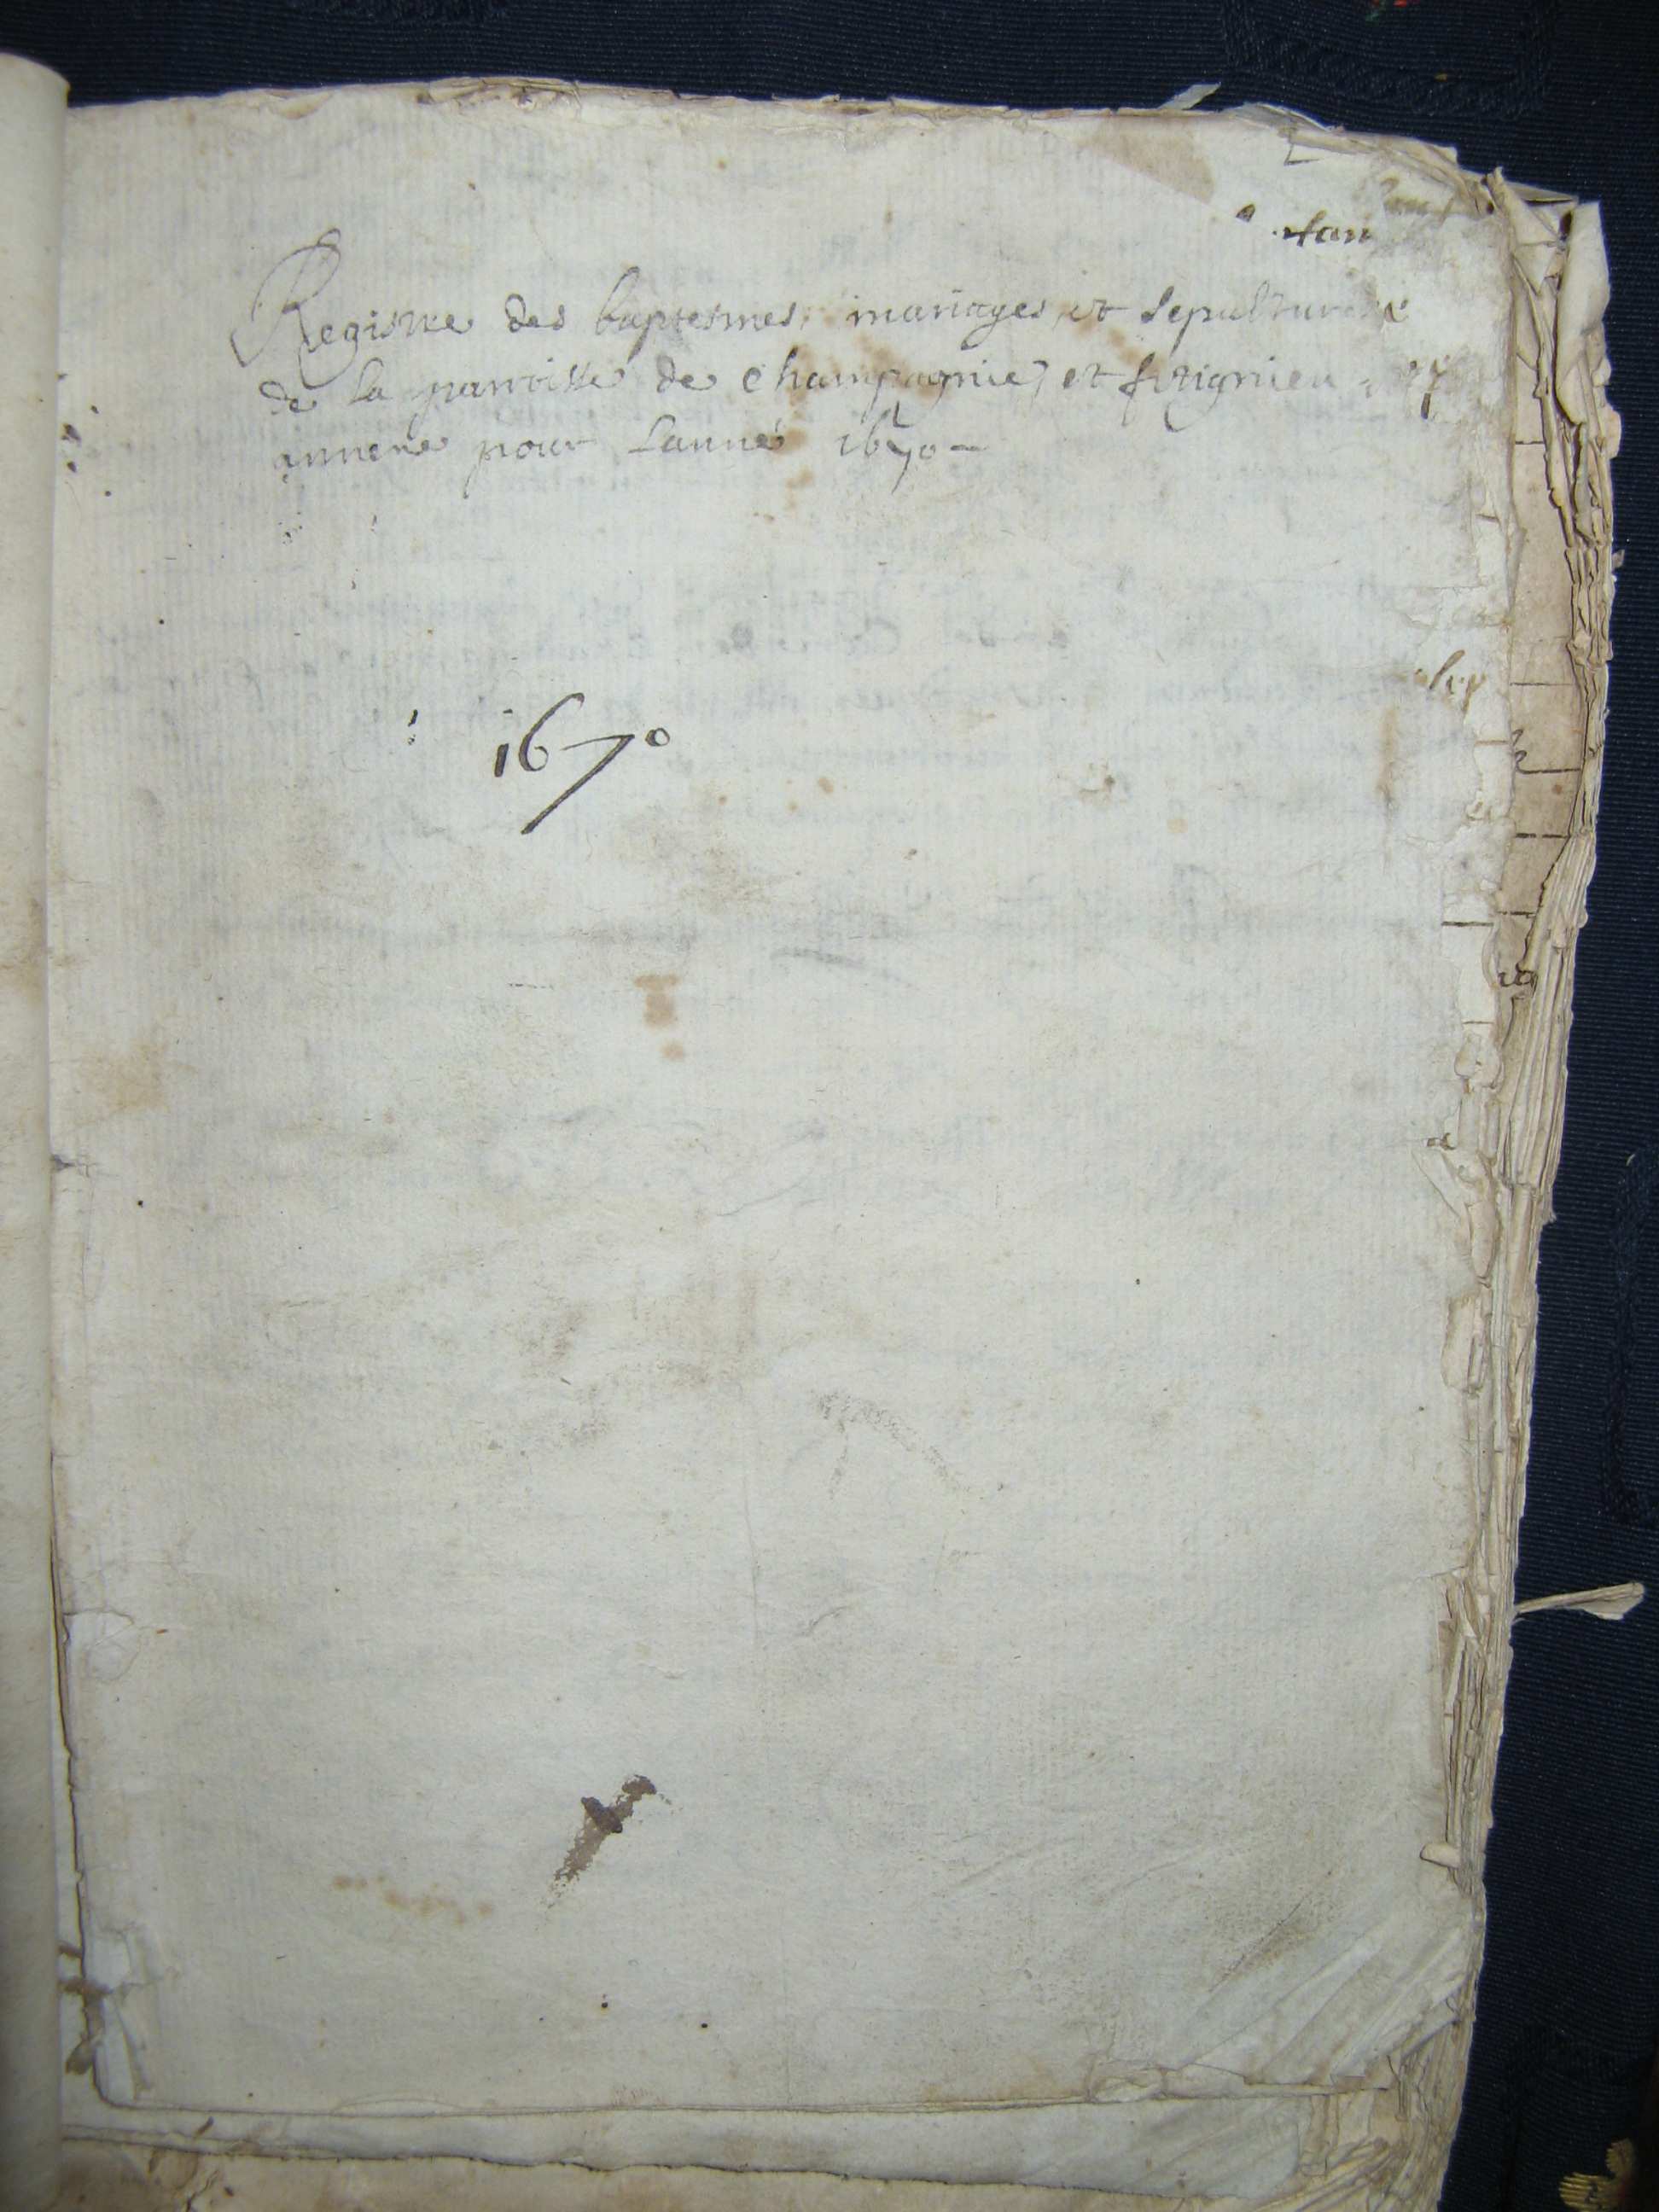 Registre des baptesmes, mariages, et sepultures
de la parroisse de Champagnie, et fitignieu
annexe pour Lanné 1670 -
1670